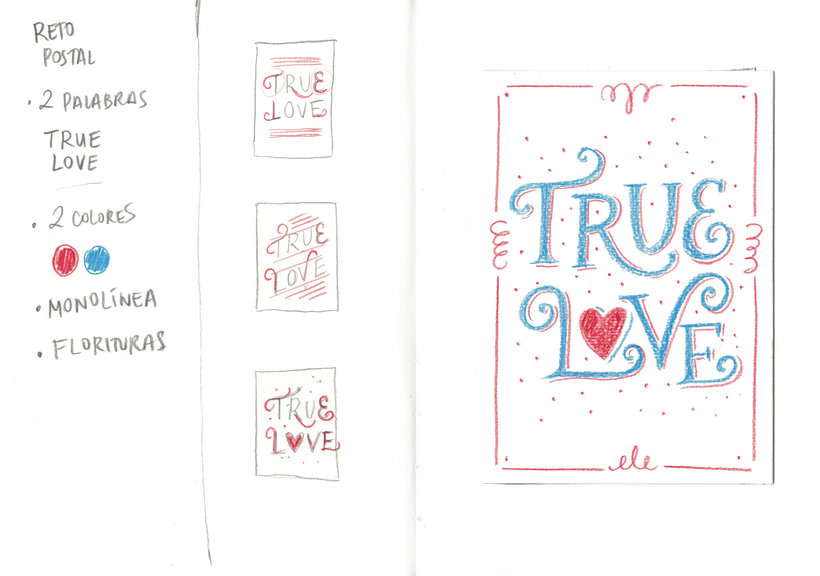 RETO
POSTAL
• 2 PALABRAS
TRUE
LOVE
• 2 COLORES
• MONOLÍNEA
• FLORITURAS
TRUE
LOVE
TRUE
LOVE
TRUE
L♥VE
TRUE
L♥VE
ele